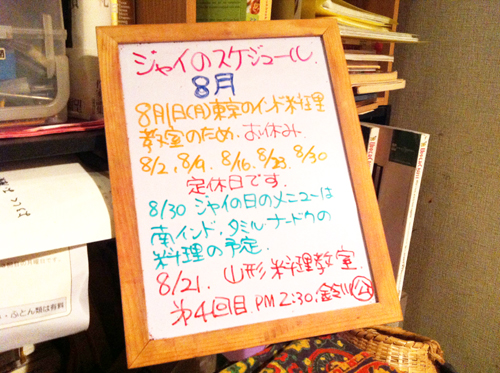 ジャイのスケジュール.
8月
8月1日(月)東京のインド料理
教室のため、お休み.
8/2, 8/9, 8/16, 8/23, 8/30
定休日です.
8/30 ジャイの日のメニューは
南インド、タミルナードゥの
料理の予定.
8/21. 山形料理教室.
第4回目. PM2:30. 鈴川公
・ふとん類は有料